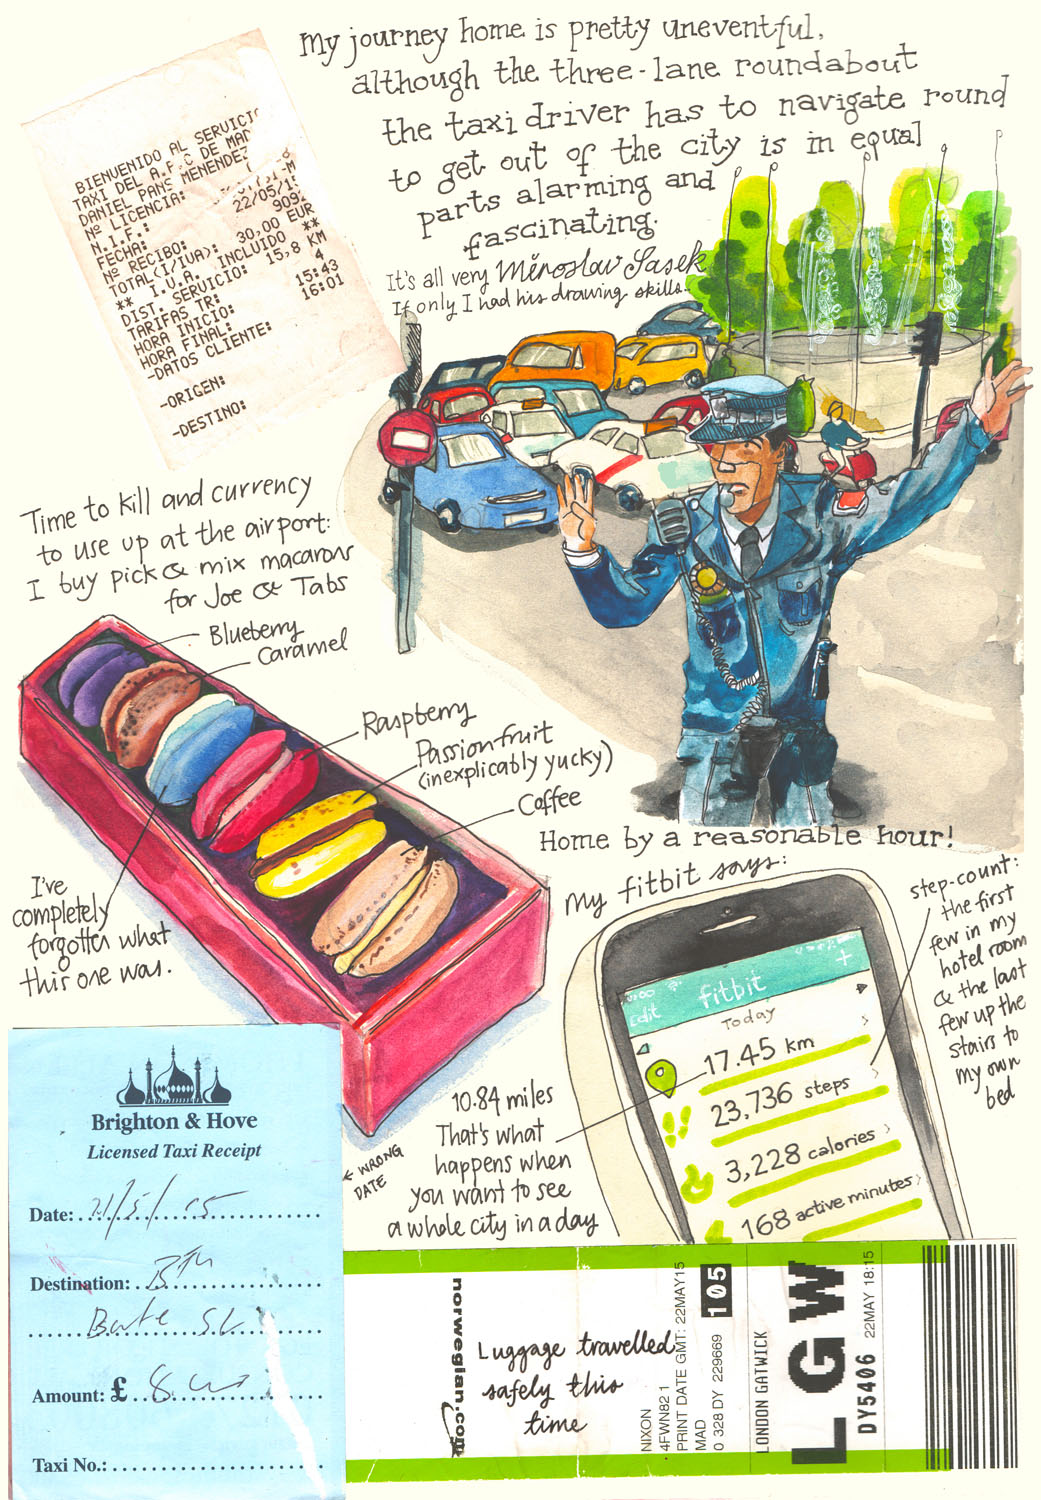 My journey home is pretty uneventful,
although the three-lane roundabout
the taxi driver has to navigate round
to get out of the city is in equal
parts alarming and
fascinating.
It's all very Miroslav Sasek
If only I had his drawing skills..
BIENVENIDO AL SERVICIO
TAXI DEL A.P.C DE MAD
DANIEL PANS MENENDEZ
Nº LICENCIA:
N.I.F.:
FECHA: 22/05/15
Nº RECIBO: 909
TOTAL(I/IVA): 30,00 EUR
** I.V.A. INCLUIDO **
DIST. SERVICIO: 15,8 KM
TARIFAS TR: 4
HORA INICIO: 15:43
HORA FINAL: 16:01
-DATOS CLIENTE:
-ORIGEN:
-DESTINO:
Time to kill and currency
to use up at the airport:
I buy pick & mix macarons
for Joe & Tabs
Blueberry
Caramel
Raspberry
Passionfruit
(inexplicably yucky)
Coffee
I've
completely
forgotten what
this one was.
Home by a reasonable hour!
My fitbit says:
step-count:
the first
few in my
hotel room
& the last
few up the
stairs to
my own
bed
Edit
fitbit
+
Today
17.45 km
23,736 steps
3,228 calories
168 active minutes
10.84 miles
That's what
happens when
you want to see
a whole city in a day
← WRONG
DATE
Brighton & Hove
Licensed Taxi Receipt
Date: 21/5/15
Destination: Btn
Amount: £ 8
Taxi No.:
norwegian.com
Luggage travelled
safely this
time
NIXON
4FWN82 1
PRINT DATE GMT: 22MAY15
MAD
0 328 DY 229669
105
LONDON GATWICK
LGW
DY5406 22MAY 18:15